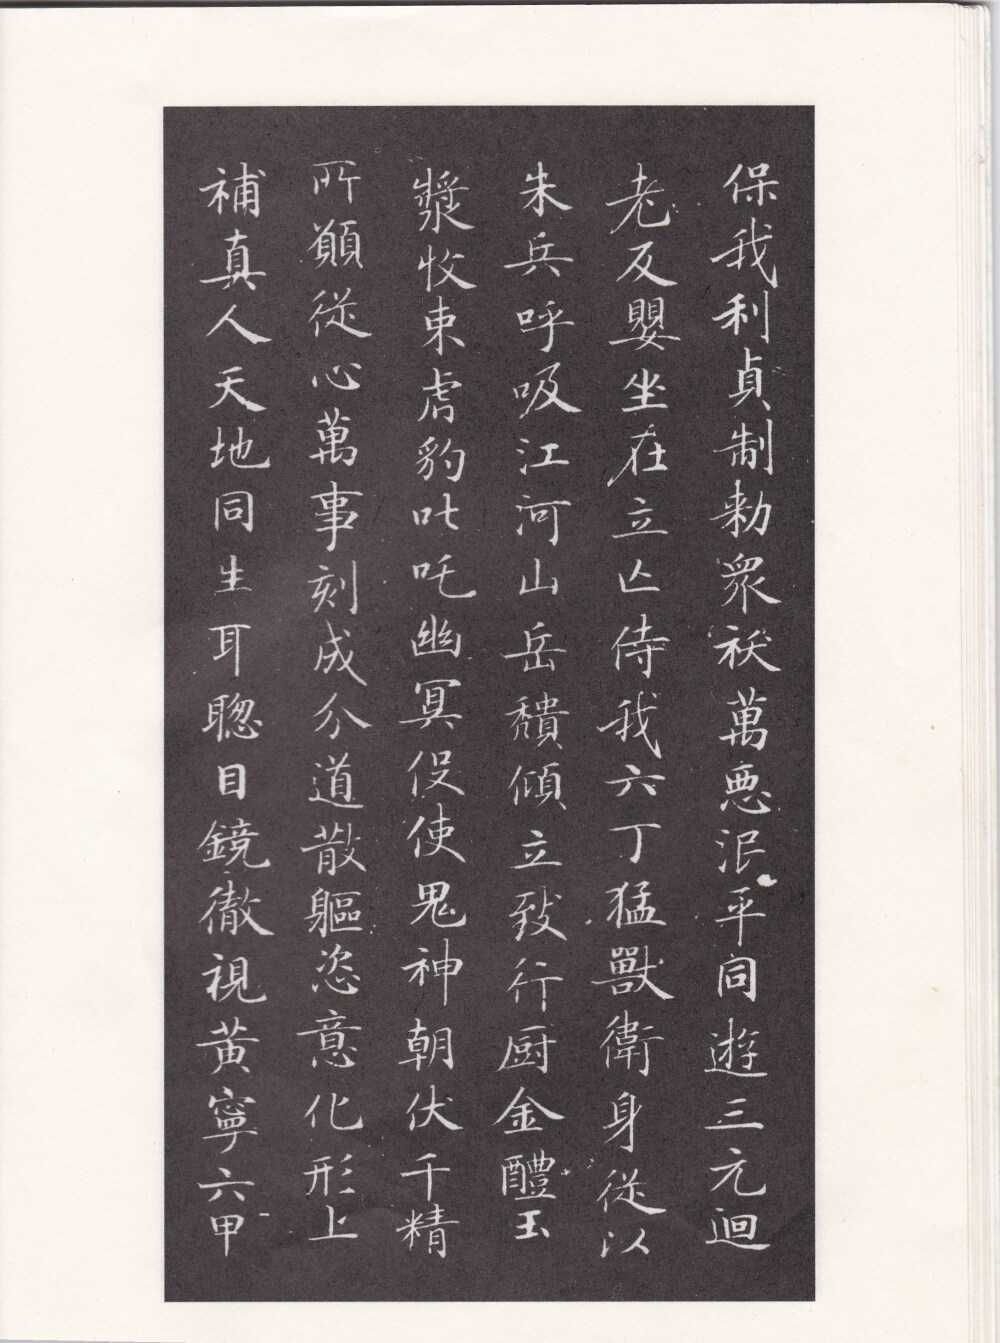 保我利貞制勑衆袄萬惡泯平同遊三元迴
老反嬰坐在立亾侍我六丁猛獸衛身從以
朱兵呼吸江河山岳穨傾立致行厨金醴玉
漿收束虎豹叱吒幽冥役使鬼神朝伏千精
所願從心萬事刻成分道散軀恣意化形上
補真人天地同生耳聰目鏡徹視黃寧六甲